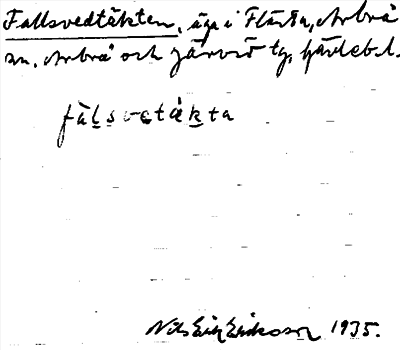 Fallsvedtäkten, äga i Flästa, Arbrå
sn. Arbrå och Järvsö tg, Gävleb. l.
fàlsvetákta
Nils Erik Eriksson 1935.